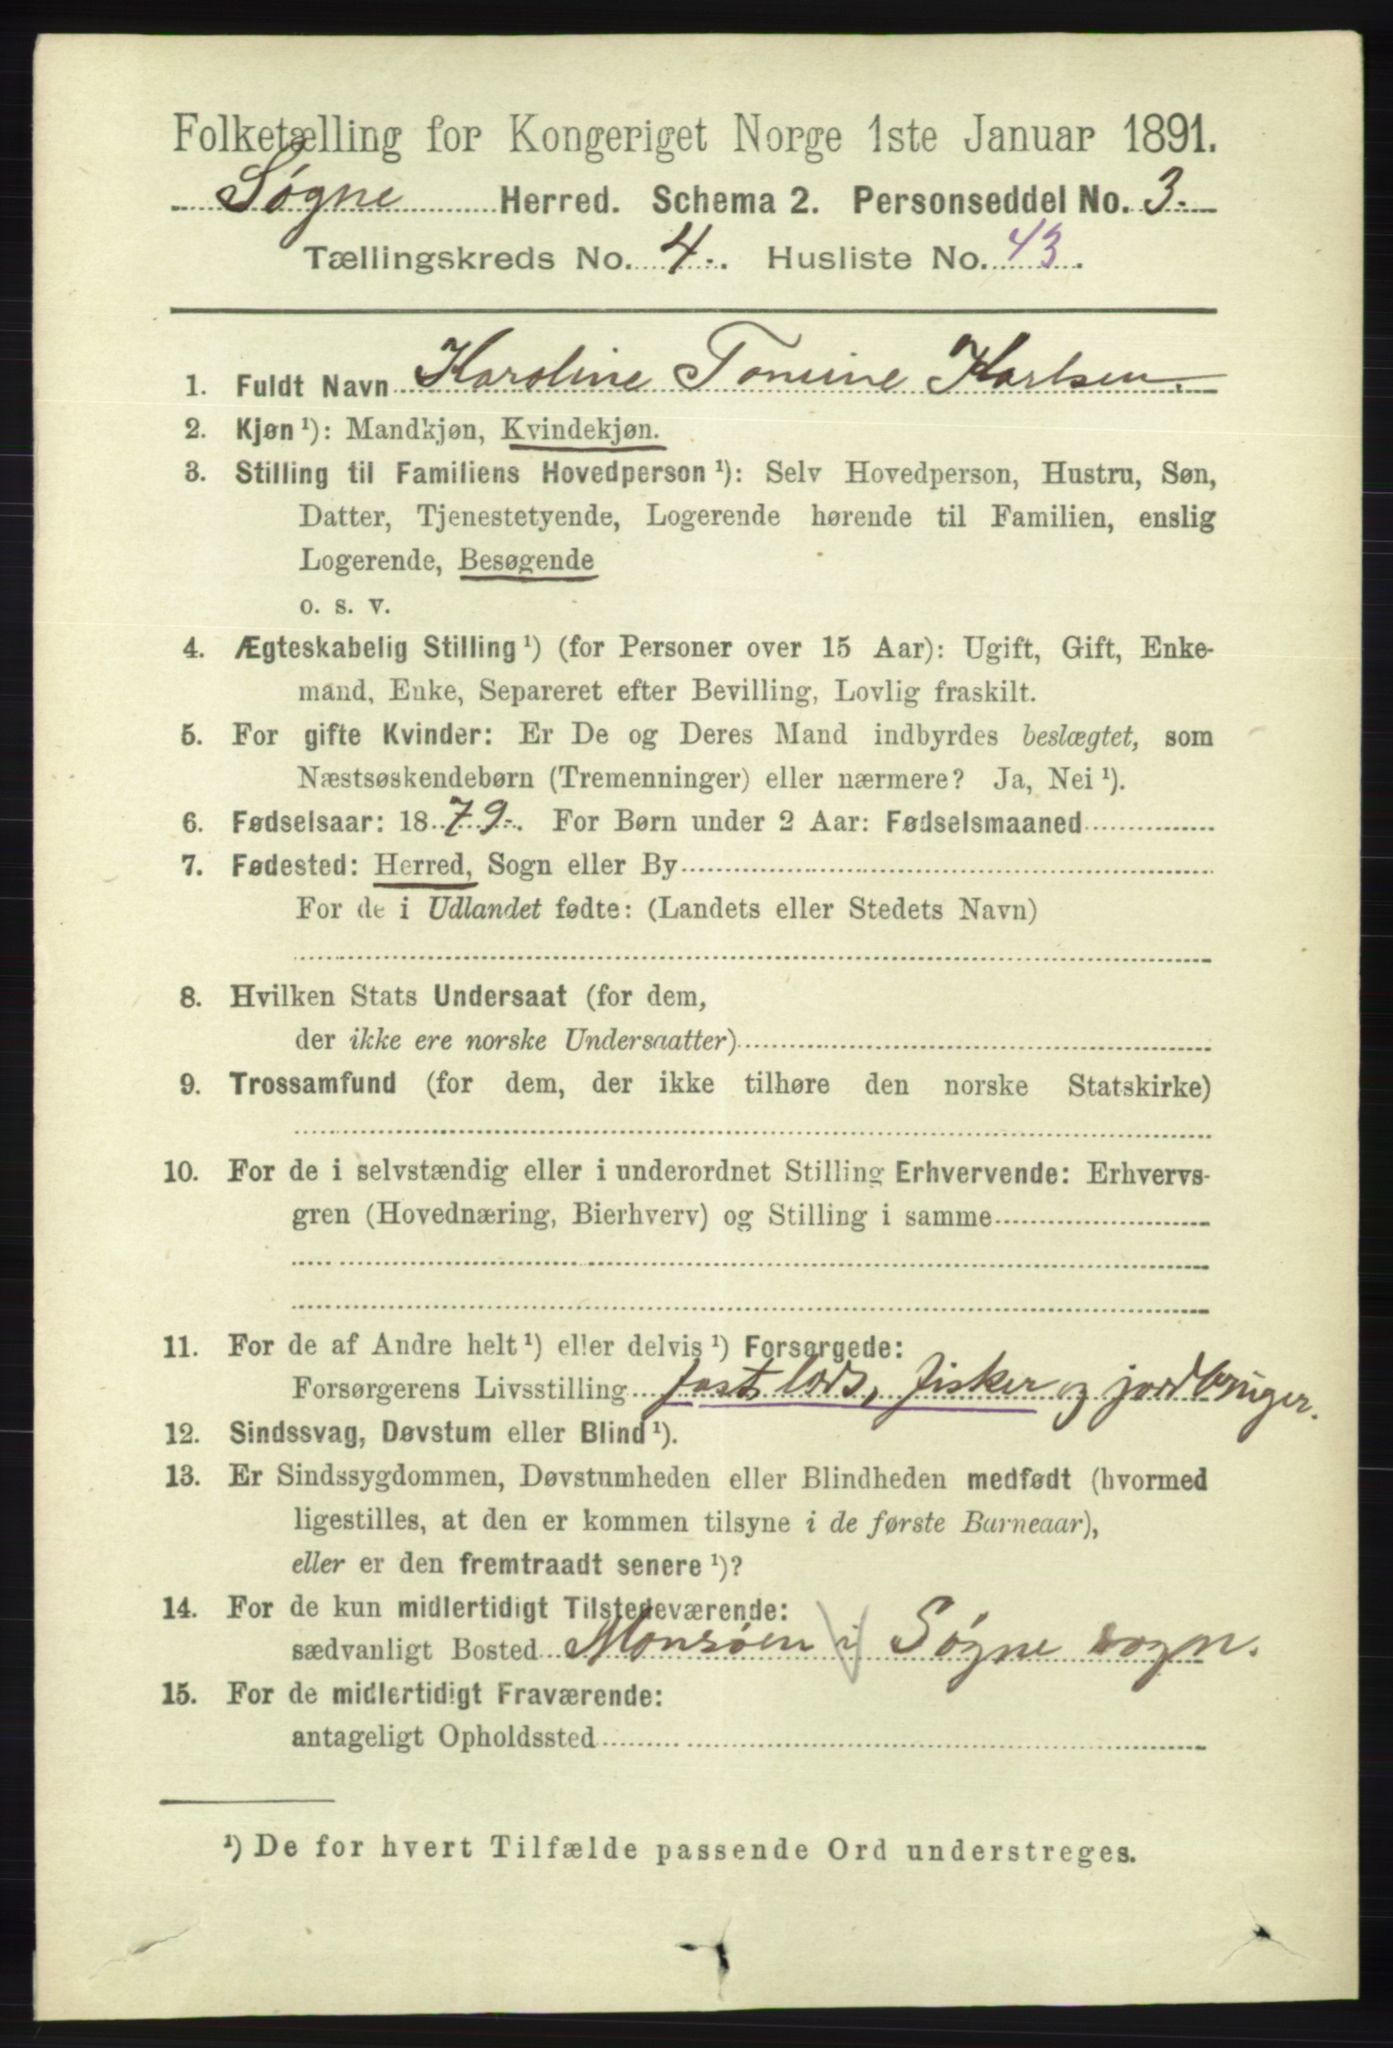 Folketælling for Kongeriget Norge 1ste Januar 1891.
Søgne Herred. Schema 2. Personseddel No. 3.
Tællingskreds No. 4. Husliste No. 43.
1. Fuldt Navn Karoline Tomine Karlsen.
2. Kjøn ¹): Mandkjøn, Kvindekjøn.
3. Stilling til Familiens Hovedperson ¹): Selv Hovedperson, Hustru, Søn,
Datter, Tjenestetyende, Logerende hørende til Familien, enslig
Logerende, Besøgende
o. s. v.
4. Ægteskabelig Stilling ¹) (for Personer over 15 Aar): Ugift, Gift, Enke-
mand, Enke, Separeret efter Bevilling, Lovlig fraskilt.
5. For gifte Kvinder: Er De og Deres Mand indbyrdes beslægtet, som
Næstsøskendebørn (Tremenninger) eller nærmere? Ja, Nei ¹).
6. Fødselsaar: 1879. For Børn under 2 Aar: Fødselsmaaned
7. Fødested: Herred, Sogn eller By
For de i Udlandet fødte: (Landets eller Stedets Navn)
8. Hvilken Stats Undersaat (for dem,
der ikke ere norske Undersaatter)
9. Trossamfund (for dem, der ikke tilhøre den norske Statskirke)
10. For de i selvstændig eller i underordnet Stilling Erhvervende: Erhvervs-
gren (Hovednæring, Bierhverv) og Stilling i samme
11. For de af Andre helt ¹) eller delvis ¹) Forsørgede:
Forsørgerens Livsstilling fast lods, fisker og jordbruger.
12. Sindssvag, Døvstum eller Blind ¹).
13. Er Sindssygdommen, Døvstumheden eller Blindheden medfødt (hvormed
ligestilles, at den er kommen tilsyne i de første Barneaar),
eller er den fremtraadt senere ¹)?
14. For de kun midlertidigt Tilstedeværende:
sædvanligt Bosted Monsøen i Søgne sogn.
15. For de midlertidigt Fraværende:
antageligt Opholdssted
¹) De for hvert Tilfælde passende Ord understreges.